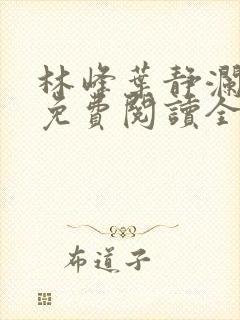 林峰葉静瀾
免費閱讀全
布道子